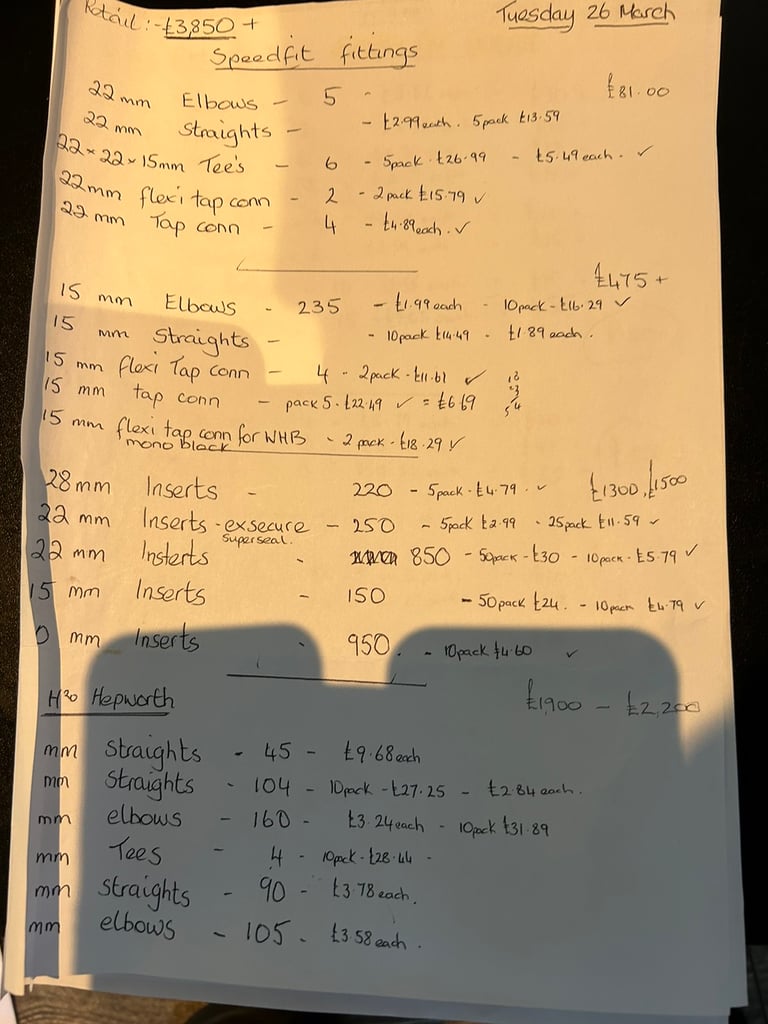 Retail :- £3,850 +
Tuesday 26 March
Speedfit fittings
£81.00
22mm Elbows - 5 -
22 mm Straights - - £2.99 each. 5pack £13.59
22×22×15mm Tee's - 6 - 5pack £26.99 - £5.49 each. ✓
22mm flexi tap conn - 2 - 2pack £15.79 ✓
22 mm Tap conn - 4 - £4.89 each. ✓
£475 +
15 mm Elbows - 235 - £1.99 each - 10pack - £16.29 ✓
15 mm Straights - - 10pack £14.49 - £1.89 each.
15 mm flexi Tap conn - 4 - 2pack - £11.61 ✓
15 mm tap conn - pack 5 - £22.49 ✓ = £6.69
15 mm flexi tap conn for WHB - 2 pack - £18.29 ✓
mono black
£1300, £1500
28mm Inserts - 220 - 5pack - £4.79 . ✓
22 mm Inserts - exsecure - 250 - 5pack £2.99 - 25pack £11.59 ✓
superseal.
22 mm Insterts - 850 - 50pack - £30 - 10pack - £5.79 ✓
15 mm Inserts - 150 - 50pack £24. - 10pack £4.79 ✓
0 mm Inserts - 950. - 10pack £4.60 ✓
£1,900 - £2,200
H²⁰ Hepworth
mm Straights - 45 - £9.68 each
mm Straights - 104 - 10pack - £27.25 - £2.84 each.
mm elbows - 160 - £3.24 each - 10pack £31.89
mm Tees - 4 - 10pack - £28.44 -
mm straights - 90 - £3.78 each.
mm elbows - 105 - £3.58 each.